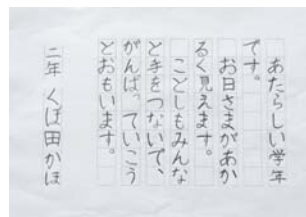 あたらしい学年
です。
お日さまがあか
るく見えます。
ことしもみんな
と手をつないで、
がんばっていこう
とおもいます。
二年 くぼ田かほ